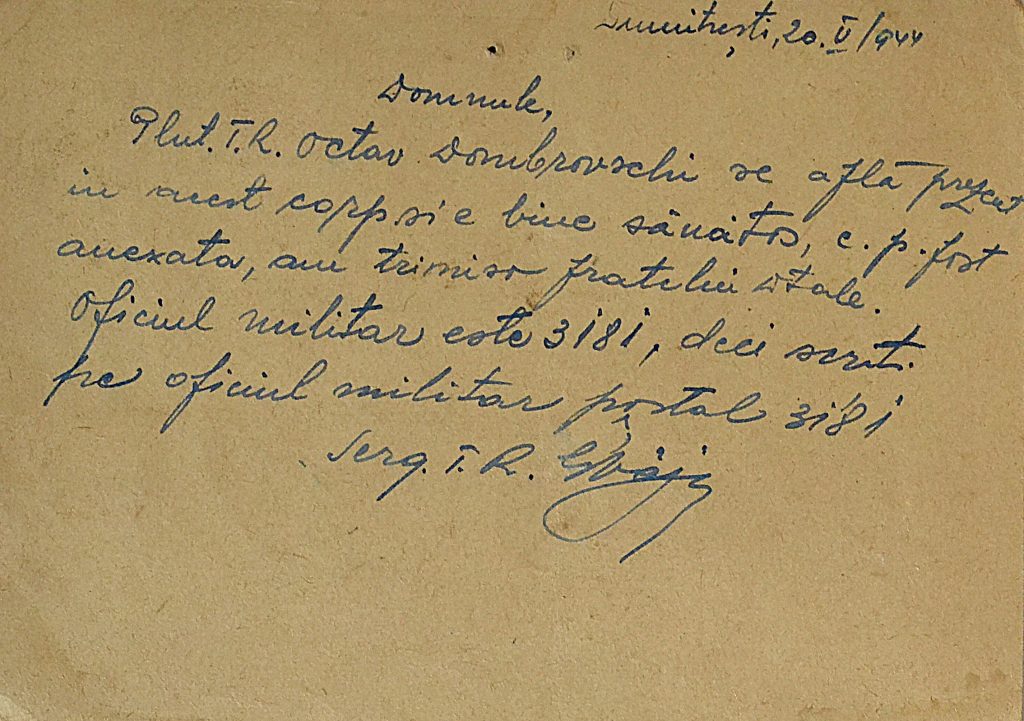 Dumitrești, 20. V/1944
Domnule,
Plut. T.R. Octav Dombrovschi se aflā prezent
in acest corp si e bine sănătos, c. p. fost
anexata, am trimiso fratelui Dtale.
Oficiul militar este 3181, deci scriti
pe oficiul militar poștal 3181
Serg. T. R.